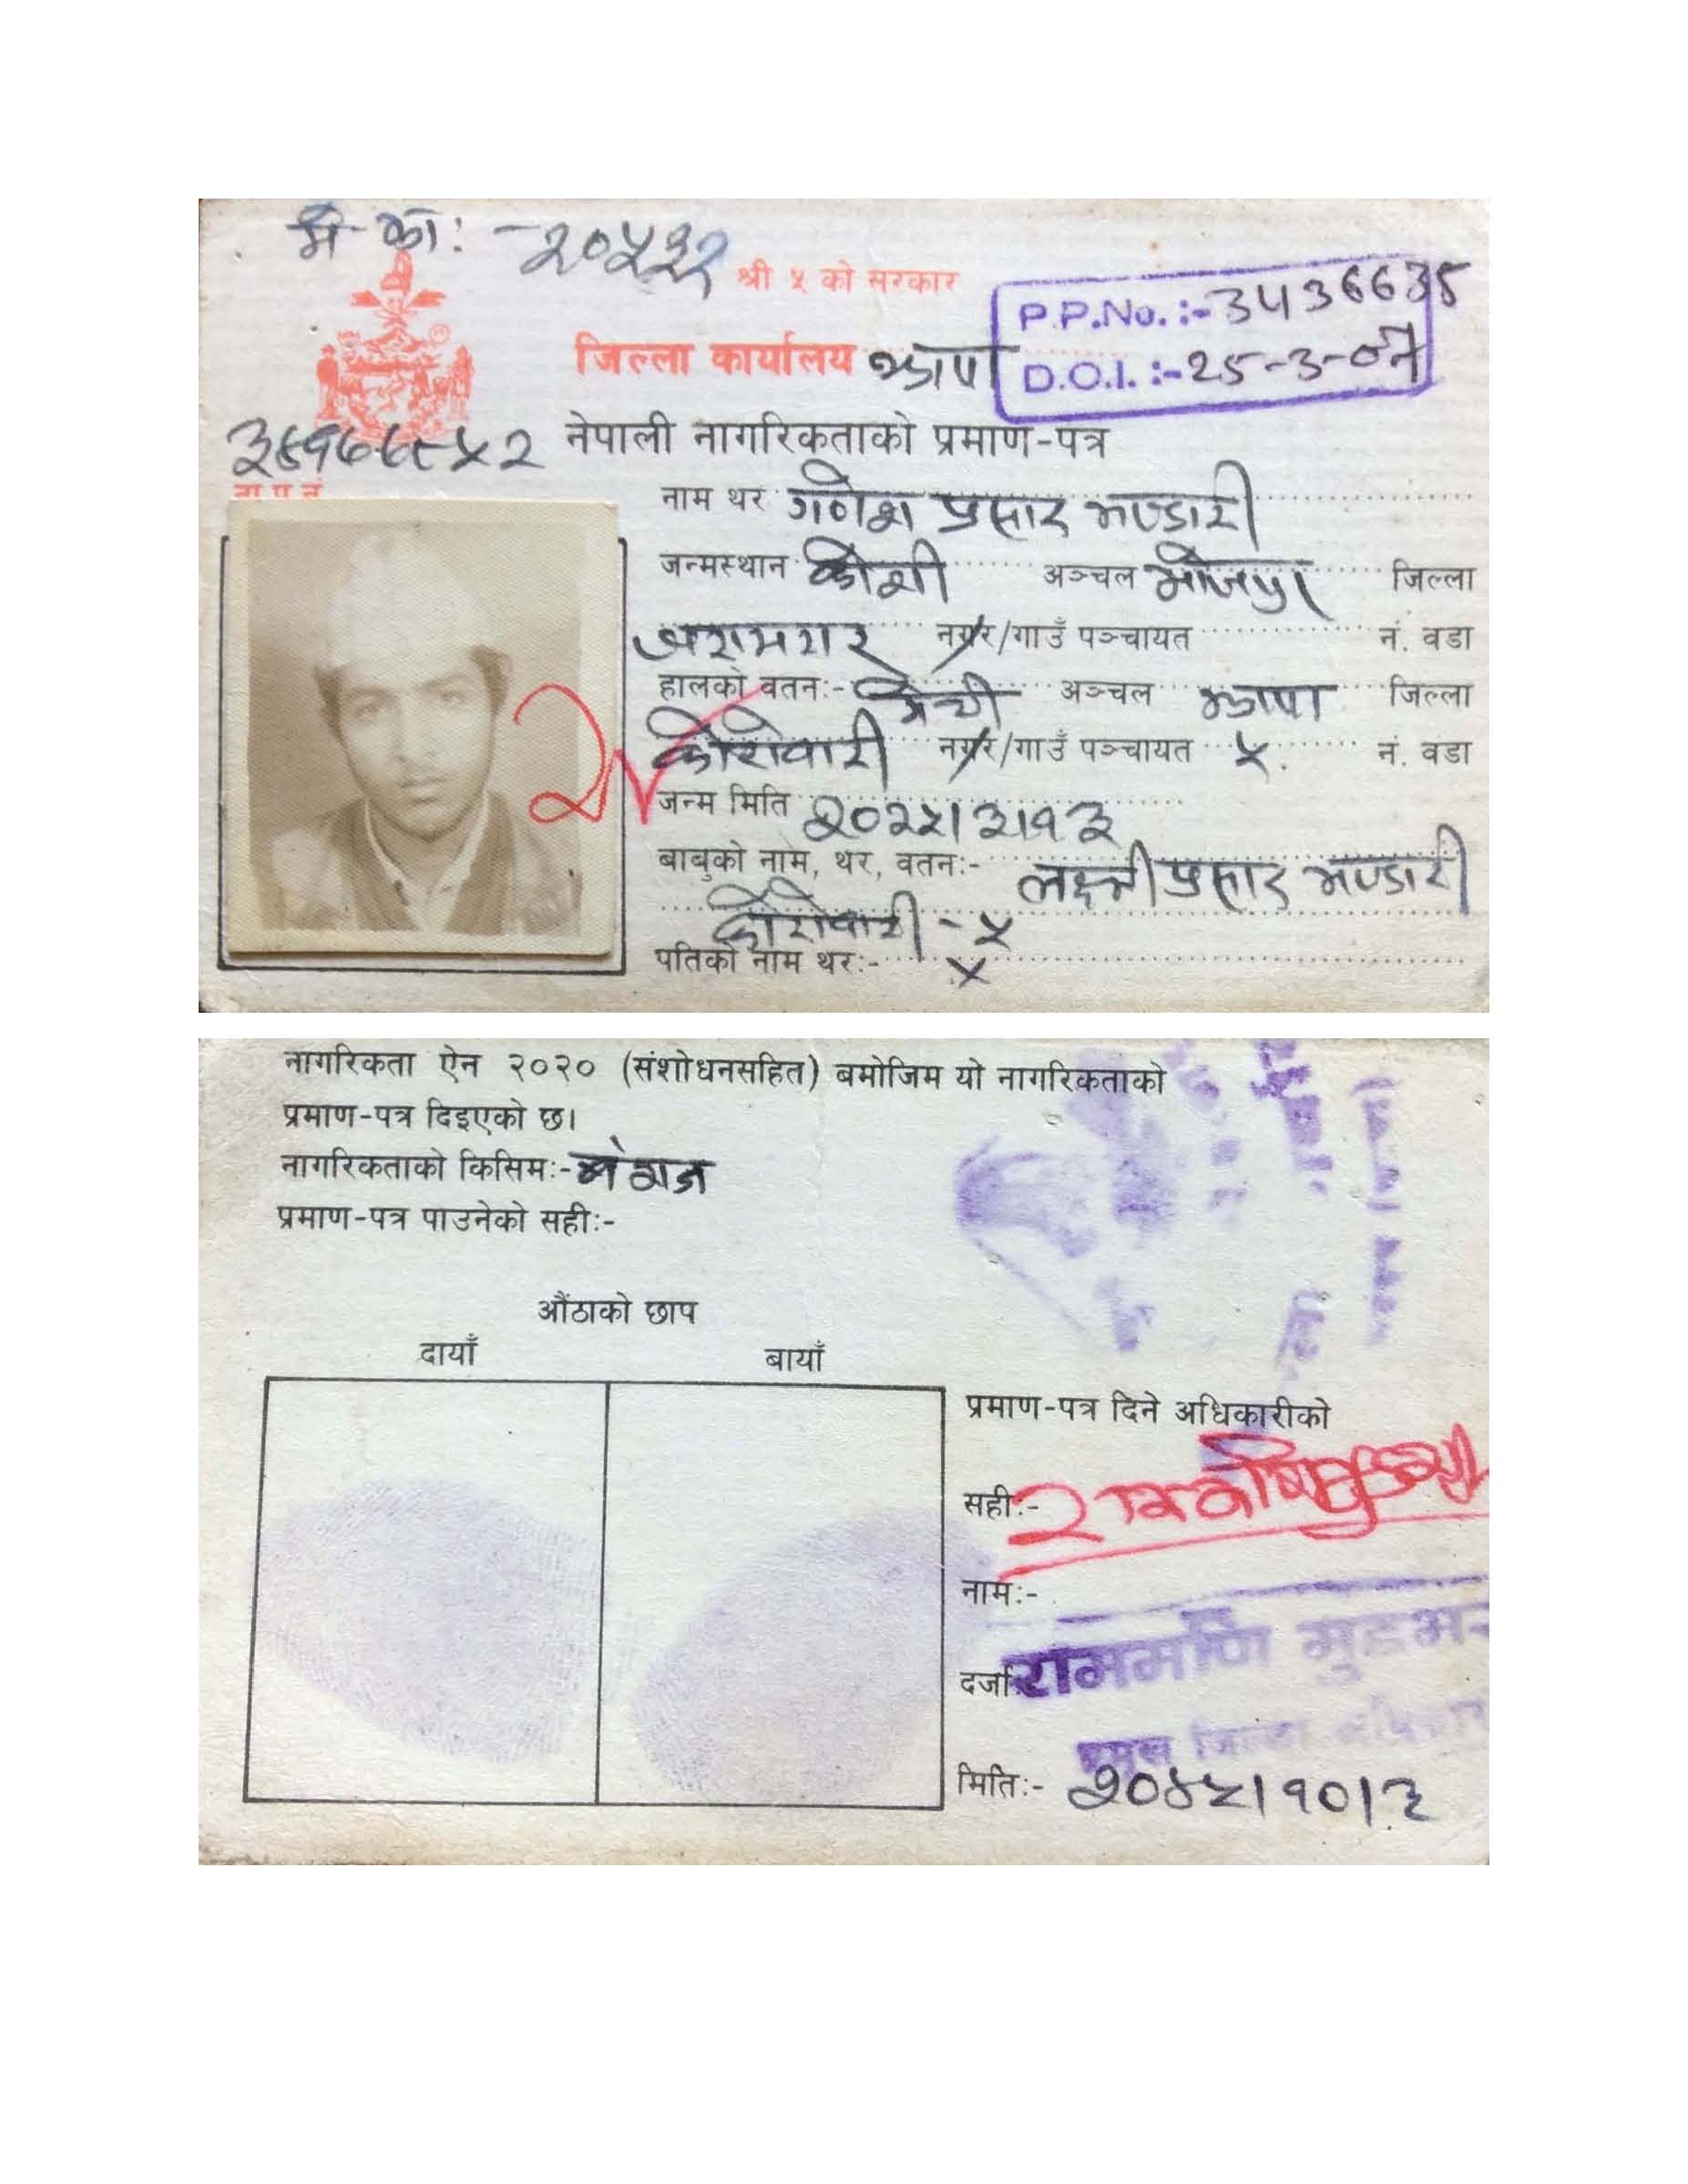 मे. का: -२०५२२
श्री ५ को सरकार
P.P.No. :- 3436635
जिल्ला कार्यालय झापा
D.O.I. :- 25-3-07
नेपाली नागरिकताको प्रमाण-पत्र
ना.प.नं.
नाम थर गणेश प्रसाद भण्डारी
जन्मस्थान कोशी अञ्चल भोजपुर जिल्ला
नगर/गाउँ पञ्चायत नं. वडा
हालको वतन:- मेची अञ्चल झापा जिल्ला
कोरोवारी नगर/गाउँ पञ्चायत ५ नं. वडा
जन्म मिति २०२५।३।१३
बाबुको नाम, थर, वतन:- लक्ष्मी प्रसाद भण्डारी
कोरोवारी - ५
पतिको नाम थर:- x
नागरिकता ऐन २०२० (संशोधनसहित) बमोजिम यो नागरिकताको
प्रमाण-पत्र दिइएको छ।
नागरिकताको किसिम:- वंशज
प्रमाण-पत्र पाउनेको सही:-
औंठाको छाप
दायाँ बायाँ
प्रमाण-पत्र दिने अधिकारीको
सही:-
नाम:-
दर्जा राममणि
प्रमुख जिल्ला अधिकारी
मिति:- २०४५।१०।३